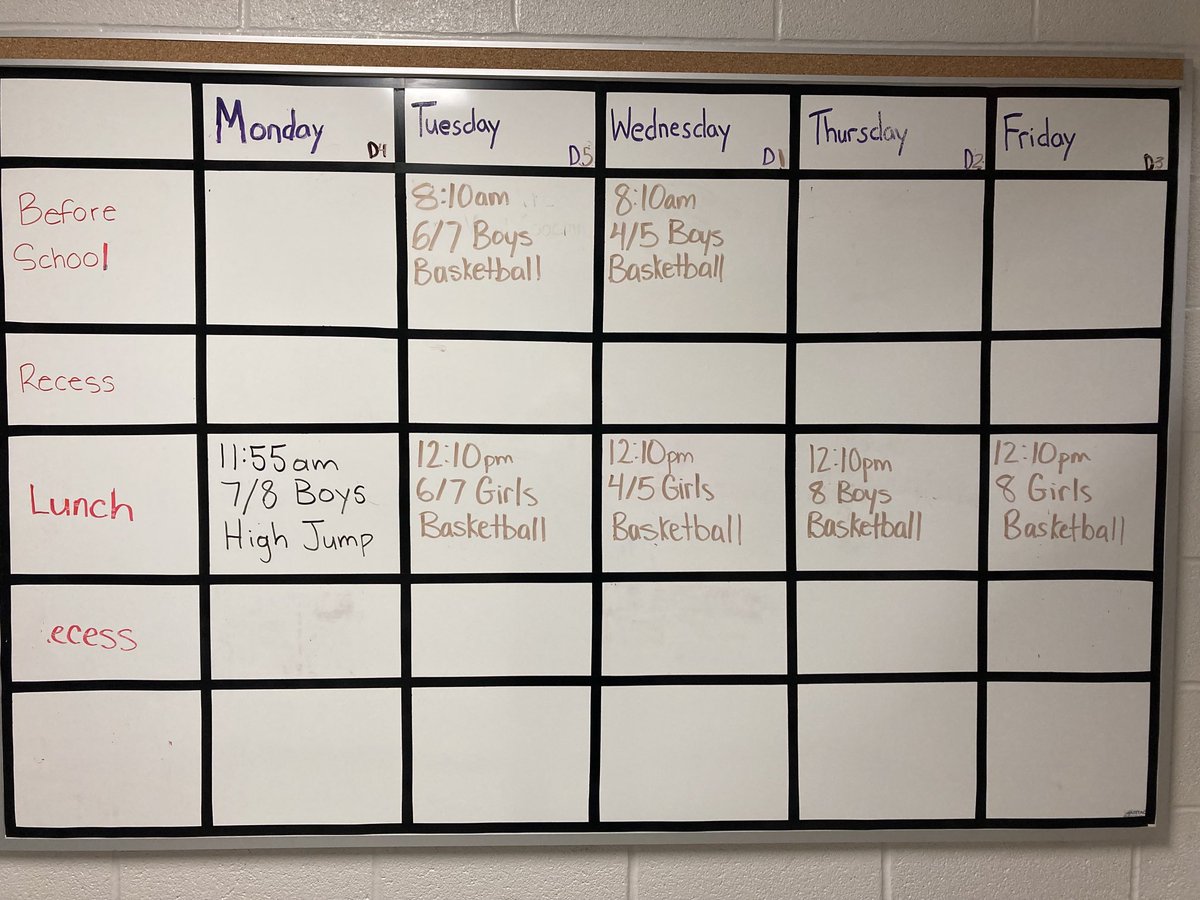 Monday D4
Tuesday D5
Wednesday D1
Thursday D2
Friday D3
Before
School
8:10am
6/7 Boys
Basketball
8:10am
4/5 Boys
Basketball
Recess
Lunch
11:55am
7/8 Boys
High Jump
12:10pm
6/7 Girls
Basketball
12:10pm
4/5 Girls
Basketball
12:10pm
8 Boys
Basketball
12:10pm
8 Girls
Basketball
ecess